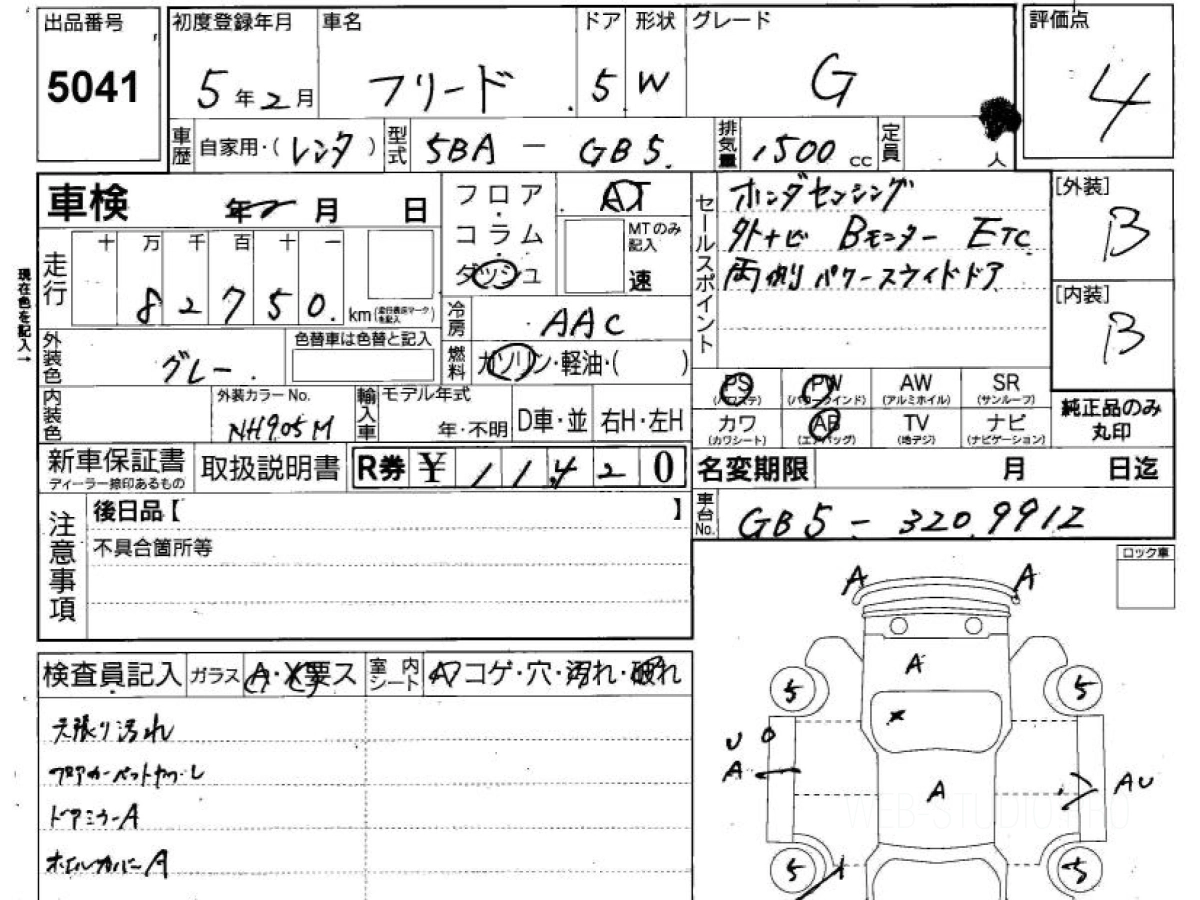 出品番号 初度登録年月 車名 ドア 形状 グレード 評価点
5041 5年2月 フリード 5 W G 4
車歴 自家用・(レンタ) 型式 5BA - GB5 排気量 1500cc 定員 人
車検 年 月 日
フロア・コラム・ダッシュ AT
MTのみ記入 速
セールスポイント
ホンダセンシング
外ナビ Bモニター ETC
両側パワースライドドア
[外装] B
[内装] B
現在色を記入→
走行 十 万 千 百 十 一
8 2 7 5 0 km
冷房 AAC
外装色 グレー 色替車は色替と記入
燃料 ガソリン・軽油・( )
PS (パワステ) PW (パワーウインド) AW (アルミホイル) SR (サンルーフ)
カワ (カワシート) AB (エアバッグ) TV (地デジ) ナビ (ナビゲーション)
純正品のみ丸印
内装色 外装カラーNo. NH905M 輸入車 モデル年式 年・不明 D車・並 右H・左H
新車保証書 ディーラー捺印あるもの 取扱説明書 R券 ¥ 11420
名変期限 月 日迄
車台No. GB5-3209912
注意事項
後日品【 】
不具合箇所等
ロック車
検査員記入 ガラス A・X・要ス 室内シート コゲ・穴・汚れ・破れ
天張り汚れ
フロアカーペット
ドアミラーA
ホイルカバーA
A A
A
5 5
X
U
A
A
AU
5 5
WEB-STUDIO.PRO